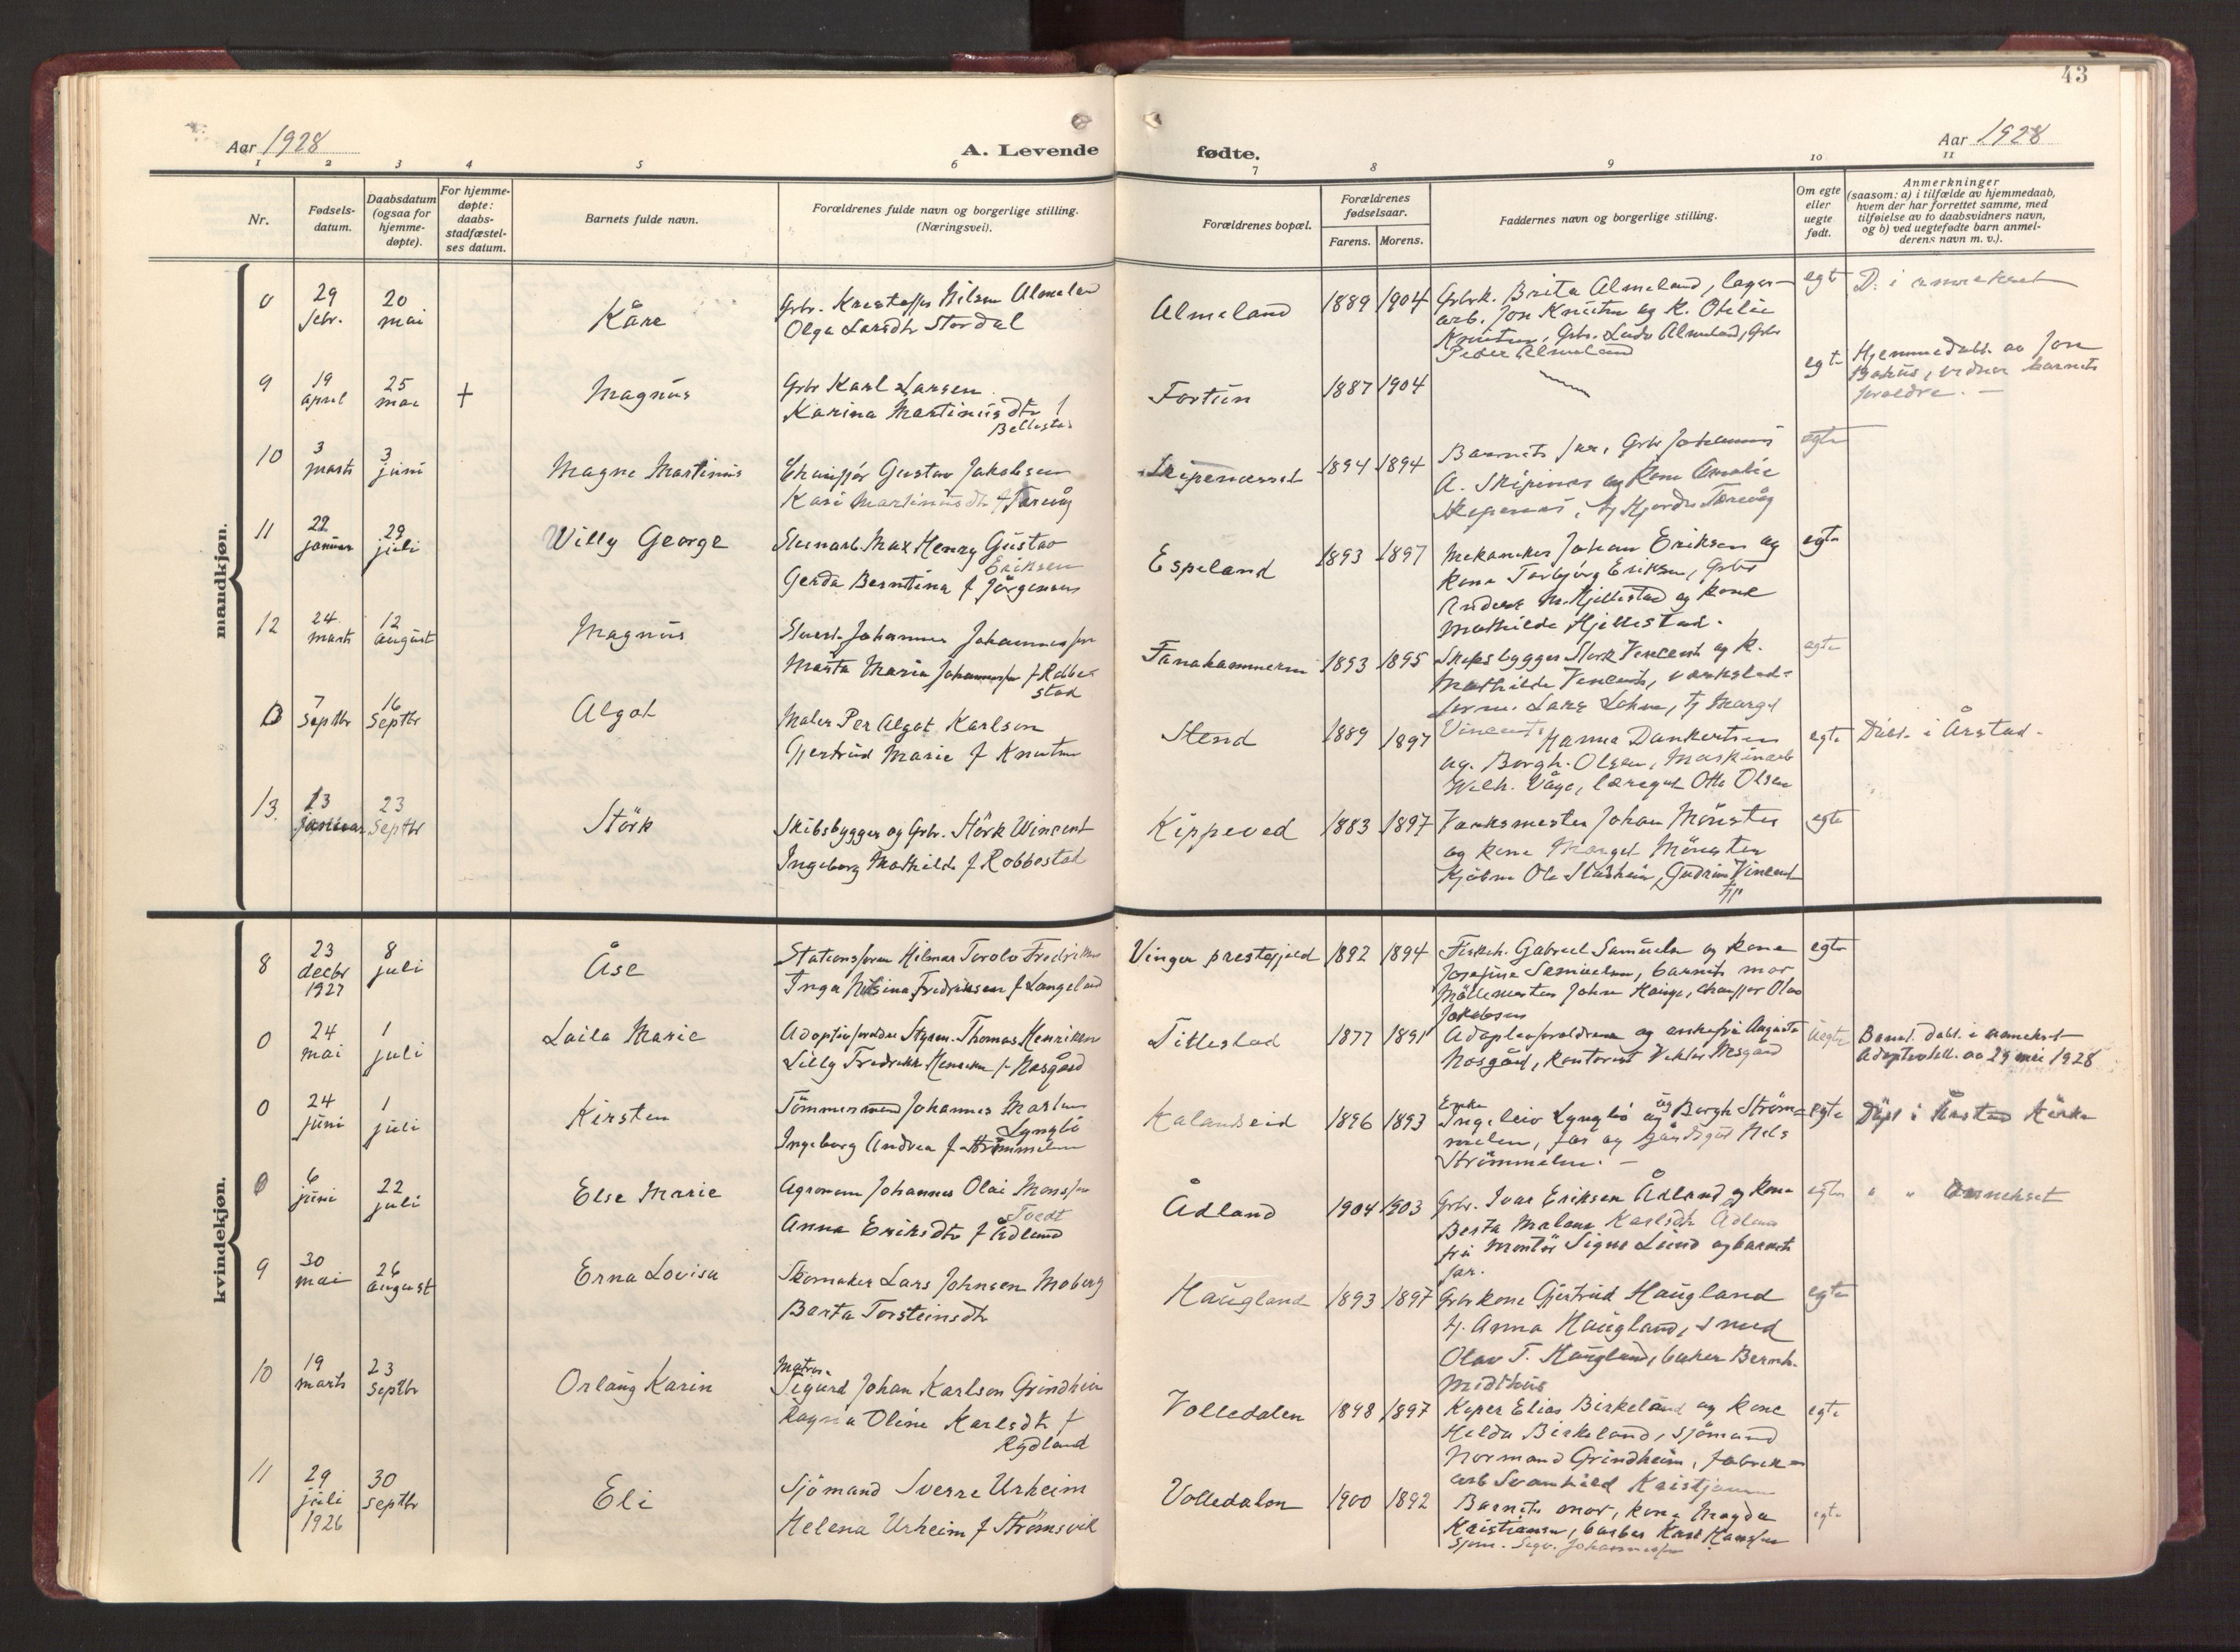 43
Aar 1928
A. Levende
fødte.
Aar 1928
1 2 3 4 5 6 7 8 9 10 11
Nr.
Fødsels-
datum.
Daabsdatum
(ogsaa for
hjemme-
døpte).
For hjemme-
døpte:
daabs-
stadfæstel-
ses datum.
Barnets fulde navn.
Forældrenes fulde navn og borgerlige stilling.
(Næringsvei).
Forældrenes bopæl.
Forældrenes
fødselsaar.
Farens. Morens.
Faddernes navn og borgerlige stilling.
Om egte
eller
uegte
født.
Anmerkninger
(saasom: a) i tilfælde av hjemmedaab,
hvem der har forrettet samme, med
tilføielse av to daabsvidners navn,
og b) ved uegtefødte barn anmel-
derens navn m. v.).
mandkjøn.
0
29
febr.
20
mai
Kåre
Grbr. Kristoffer Nilsen Almeland
Olga Larsdtr Stordal
Almeland
1889 1904
Grbrk. Brita Almeland, lager-
arb. Jon Knutsen og K. Otilie
Knutsen, Grbr. Almeland, Grbr
Peder Almeland
egte
D. i annekset
9
19
april
25
mai
+
Magnus
Grbr Karl Larsen
Karina Martinusdtr f
Bellestad
Fortun
1887 1904
egte
Hjemmedøbt av Jon
vidner barnets
foreldre. —
10
3
marts
3
juni
Magne Martinus
Chauffør Gustav Jakobsen
Kari Martinusdtr f Torevåg
Skipenesset
1894 1894
Barnets far, Grbr Johannes
A. Skipenes og Kone Amalie
Skipenes, Tj Hjørdis Torevåg
egte
11
22
januar
29
juli
Willy George
Stenarb. Max Henry Gustav
Eriksen
Gerda Berntina f Jörgensen
Espeland
1893 1897
Mekaniker Johan Eriksen og
kone Torbjørg Eriksen, Grbr
Anders M. Hjellestad og kone
Mathilde Hjellestad.
egte
12
24
marts
12
august
Magnus
Johannes Johannessen
Marta Maria Johannessen f Robbe-
stad
Fanahammeren
1893 1895
Skibsbygger Störk Vincent og k.
Mathilde Vincent, verksted-
form. Lars Lohne, Tj Margit
Vincent
egte
0
7
Septbr
16
Septbr
Algot
Maler Per Algot Karlson
Gjertrud Marie f Knutsen
Stend
1889 1897
Hanna Dankertsen
og Borgh. Olsen, Maskinarb
Wilh. Våge, læregut Otto Olsen
egte
Døbt. i Årstad.
13.
13
Januar
23
Septbr
Störk
Skibsbygger og Grbr. Störk Wincent
Ingeborg Mathilde f Robbestad
Kippeved
1883 1897
Verksmester Johan Mönster
og kone Margit Mönster
Kjöbm Ole Stadheim, Gudrun Vincent
Tjp
egte
kvindekjøn.
8
23
decbr
1927
8
juli
Åse
Hilmar Torolv Fredriksen
Inga Nilsina Fredriksen f Langeland
Vinger prestegjeld
1892 1894
Fiskeh. Gabriel Samuelsen og kone
Josefine Samuelsen, barnets mor
Möllemester Johan Hauge, chauffør Olav
Jakobsen
egte
0
24
mai
1
juli
Laila Marie
Adoptivforeldre Styrm. Thomas Henriksen
Lilly Fredrikke Henriksen f Nesgård
Titlestad
1877 1891
Adoptivforeldrene og enkefru Augusta
Nesgård, kontorist Viktor Nesgård
Uegte
Barnet. døbt. i annekset
Adoptivbev. av 29 mai 1928
0
24
juni
1
juli
Kirsten
Tömmermand Johannes Martin
Lyngbö
Ingeborg Andrea f Strömmelen
Kalandseid
1896 1893
Enke
Ingeleiv Lyngbö og Bergh Ström-
melen, far og gårdsgut Nils
Strömmelen. —
egte
Döpt i Årstad Kirke
0
6
juni
22
juli
Else Marie
Agronom Johannes Olai Monsen
Tvedt
Anna Eriksdtr f Ådland
Ådland
1904 1903
Grbr. Ivar Eriksen Ådland og kone
Berta Malene Karlsdtr Ådland
fru Montör Signe Lund og barnets
far.
egte
" " annekset
9
30
mai
26
august
Erna Lovisa
Skomaker Lars Johnsen Moberg
Berta Torsteinsdtr
Haugland
1893 1897
Grbrkone Gjertrud Haugland
Tj. Anna Haugland, smed
Olav T. Haugland, baker Bernh.
Midthus
egte
10
19
marts
23
Septbr
Orlaug Karin
Matros
Sigurd Johan Karlson Grindheim
Ragna Oline Karlsdtr f
Rydland
Volledalen
1898 1897
Elias Birkeland og kone
Helda Birkeland, sjömand
Normand Grindheim, fabrik-
arb Svanhild Kristjansen
egte
11
29
juli
1926
30
septbr
Eli
Sjömand Sverre Urheim
Helena Urheim f Strömsvik
Volledalen
1900 1892
Barnets mor, kone Magda
Kristiansen, barber Karl Hansen
Sjöm. Sigv. Johannessen
egte